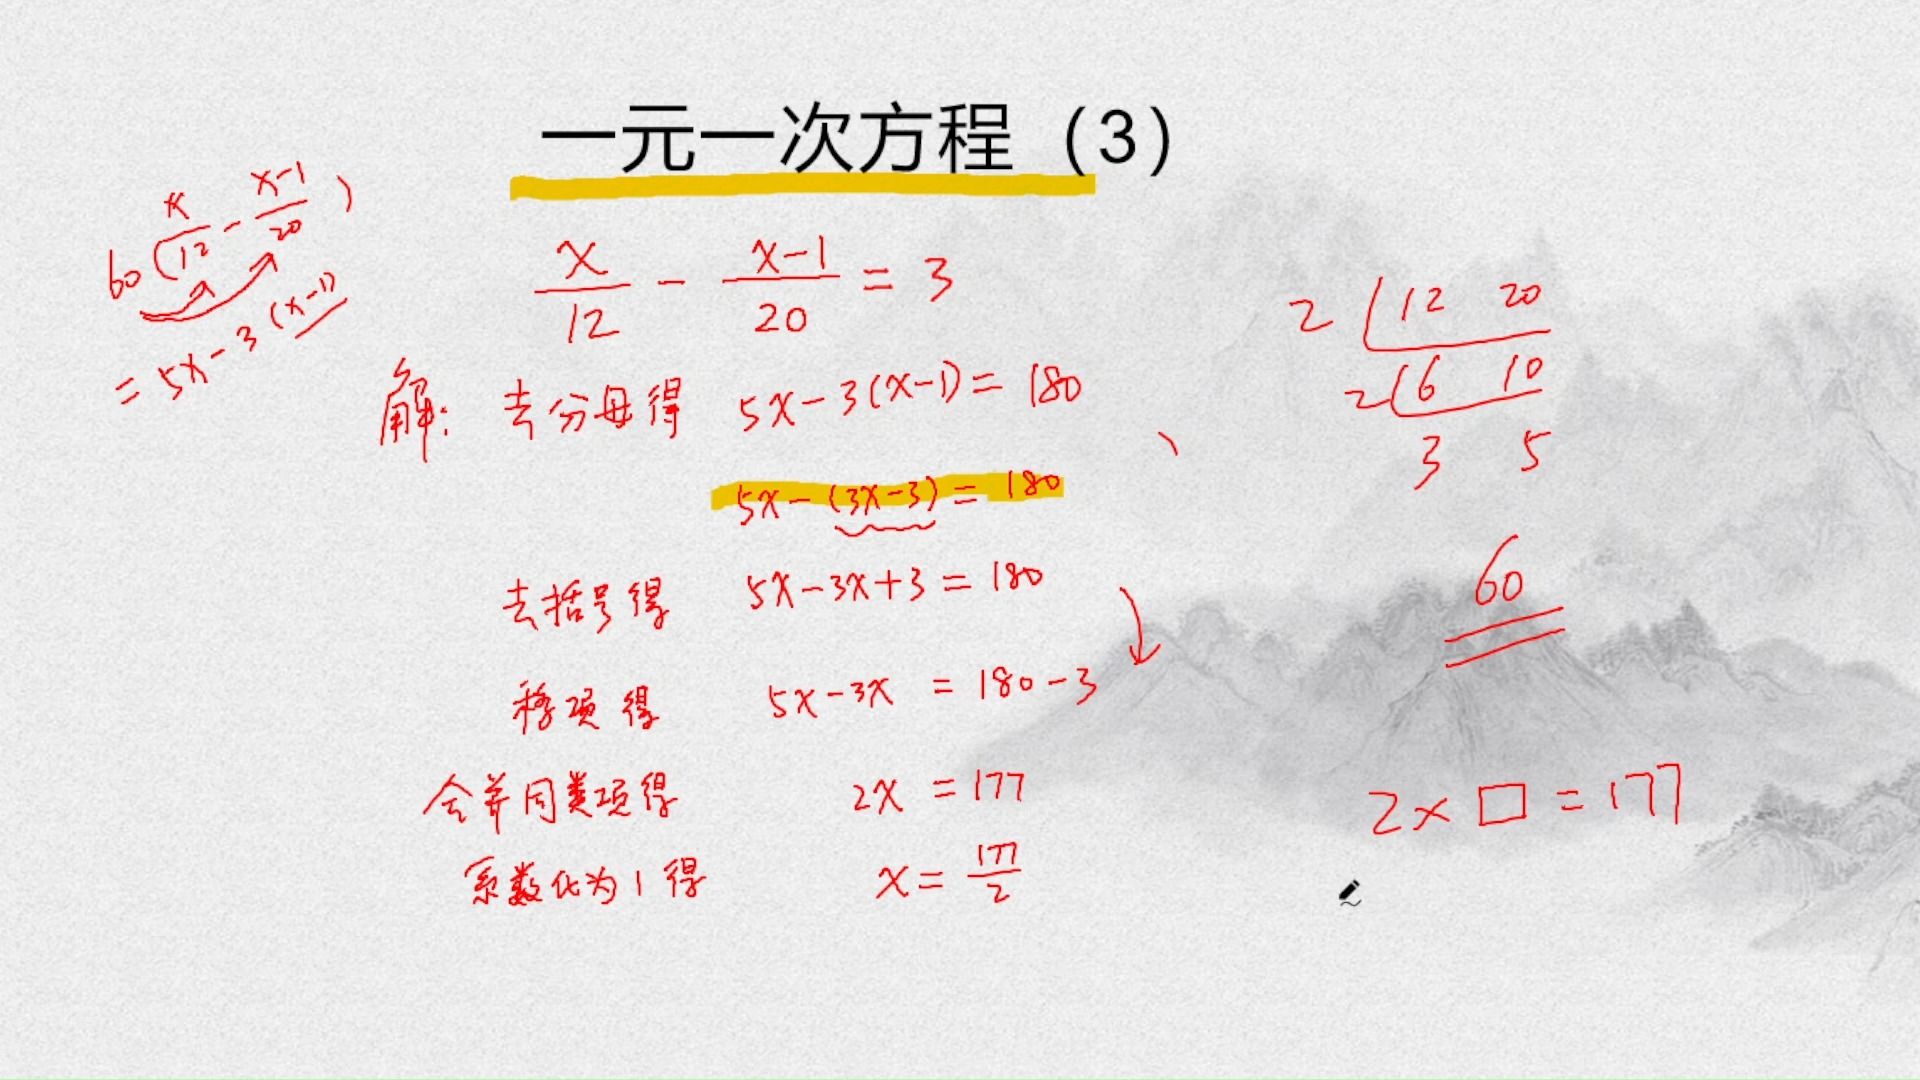 一元一次方程（3）
x/12 - (x-1)/20 = 3
60(x/12 - (x-1)/20)
= 5x-3(x-1)
解: 去分母得 5x-3(x-1)=180
5x-(3x-3)=180
去括号得 5x-3x+3=180
移项得 5x-3x =180-3
合并同类项得 2x =177
系数化为1得 x=177/2
2 12 20
2 6 10
3 5
60
2×□=177